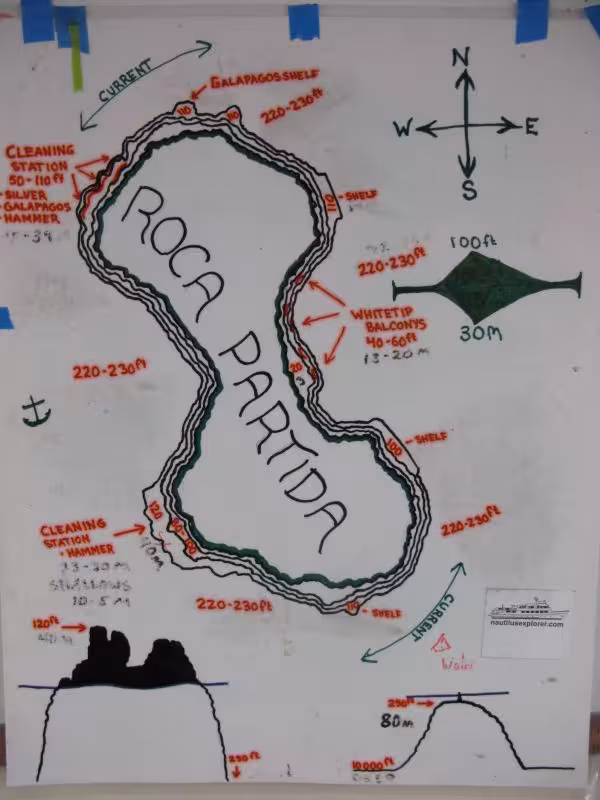 CURRENT
GALAPAGOS SHELF
110
110
220-230ft
N
W
E
S
CLEANING
STATION
50-110ft
- SILVER
- GALAPAGOS
- HAMMER
110
- SHELF
ROCA
PARTIDA
220-230ft
100ft
30M
WHITETIP
BALCONYS
40-60ft
13-20M
220-230ft
100
- SHELF
220-230ft
120
CLEANING
STATION
• HAMMER
40M
220-230ft
- SHELF
CURRENT
nautilusexplorer.com
120ft
250ft
80m
10000ft